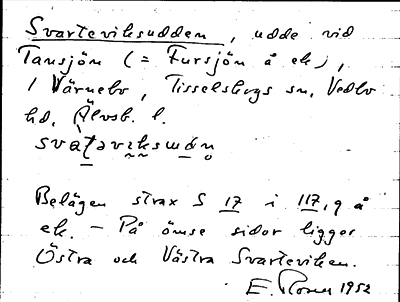 Svarteviksudden, udde vid
Tansjön (= Fursjön å ek),
i Värnebo, Tisselskogs sn, Vedbo
hd, Älvsb. l.
svat̠əvɪksɯdn̥
Belägen strax S 17 i 117, 9 å
ek. – På ömse sidor ligger
Östra och Västra Svarteviken.
E. 1952